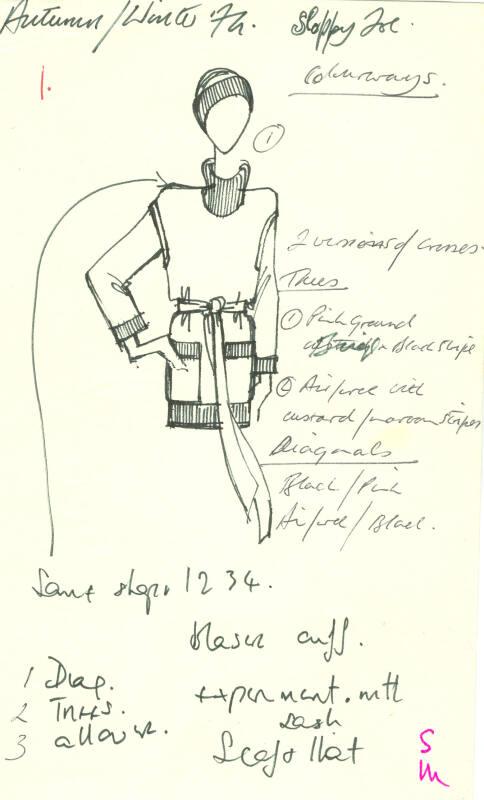 Autumn/Winter 74. Sloppy Joe.
1.
Colourways.
1
2 versions of crosses.
Trees
① Pink ground
Black stripe
② Airforce with
custard/maroon stripes
Diagonals
Black/Pink
Airforce/Black.
Same shape 1 2 3 4.
cuff.
1 Diag.
2 Trees.
experiment. with
sash
3 allover.
Scarf + Hat
S
M